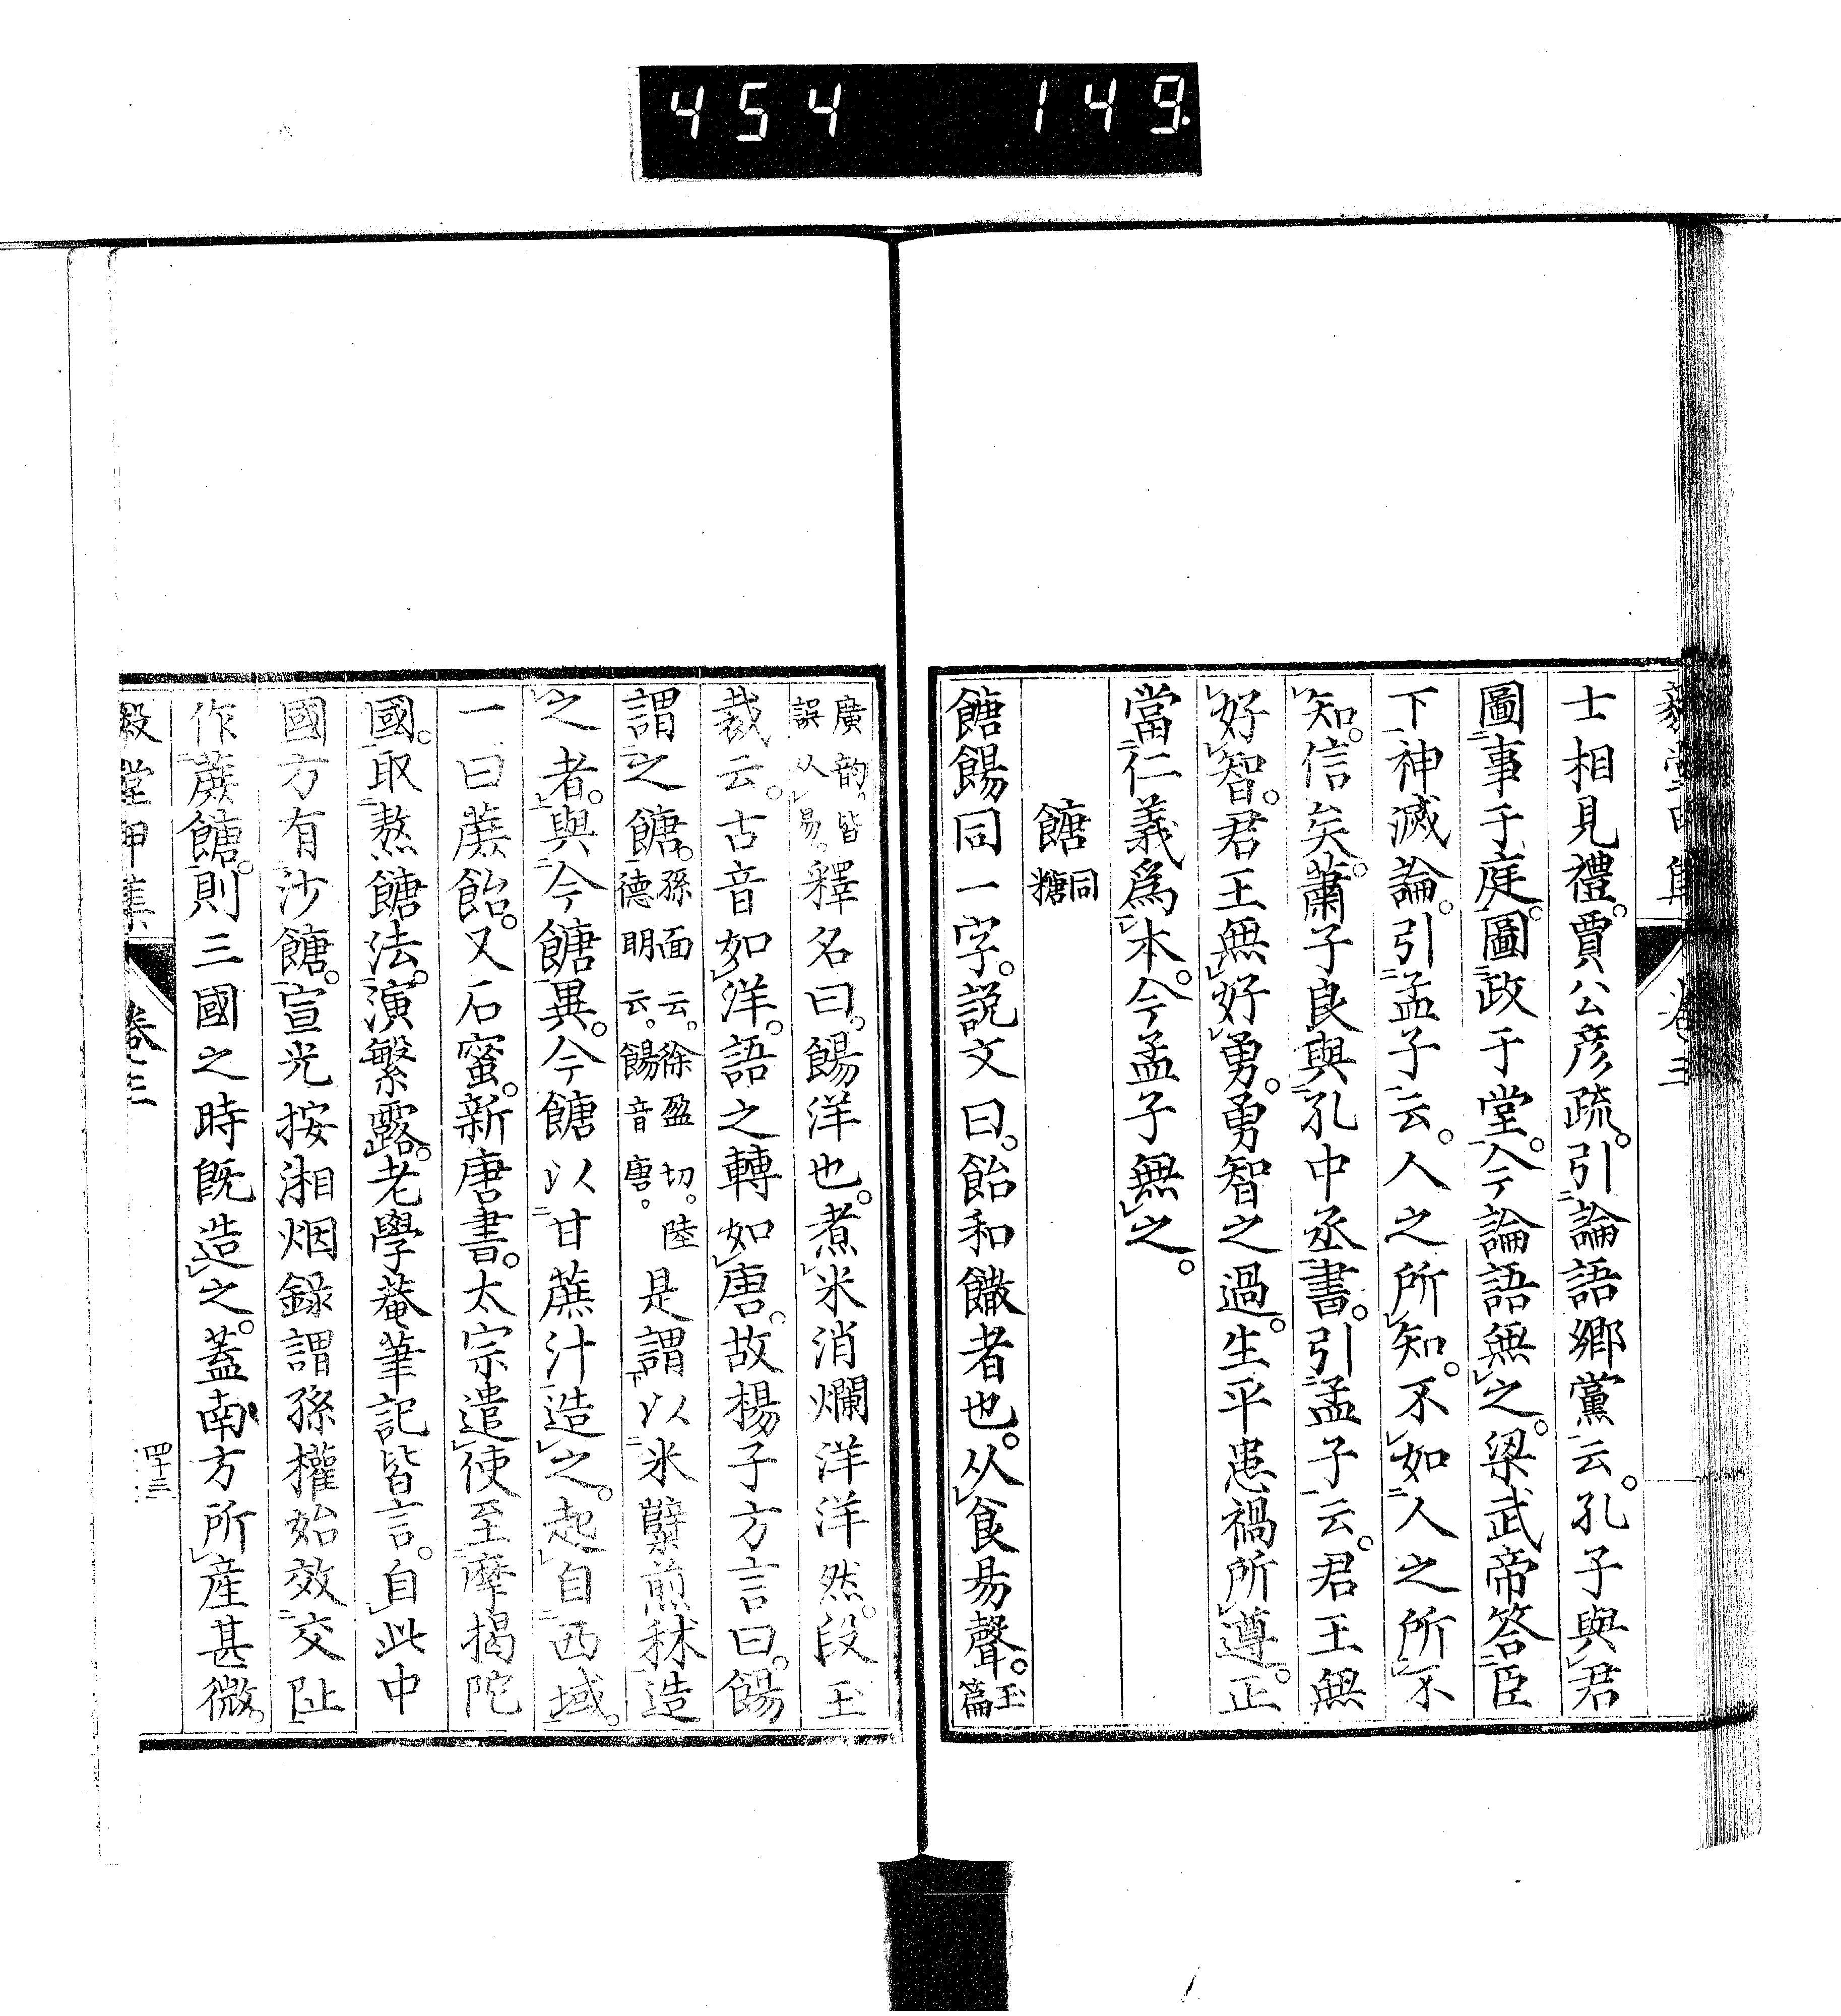 454 149.
毅堂甲集 卷三
士相見禮。賈公彦疏。引論語鄉黨云。孔子與君
圖事于庭。圖政于堂。今論語無之。梁武帝答臣
下神滅論。引孟子云。人之所知。不如人之所不
知。信矣。蕭子良與孔中丞書。引孟子云。君王無
好智。君王無好勇。勇智之過。生平患禍所遵。正
當仁義爲本。今孟子無之。
餹 糖同
餹餳同一字。説文曰。飴和饊者也。从食昜聲。玉篇
廣韵。皆誤从易。釋名曰。餳洋也。煮米消爛洋洋然。段玉
裁云。古音如洋。語之轉如唐。故楊子方言曰。餳
謂之餹。孫愐云。徐盈切。陸德明云。餳音唐。是謂以米糵煎秫造
之者。與今餹異。今餹以甘蔗汁造之。起自西域。
一曰蔗飴。又石蜜。新唐書。太宗遣使至摩揭陀
國。取熬餹法。演繁露。老學菴筆記皆言。自此中
國方有沙餹。宣光按湘烟録謂孫權始效交阯
作蔗餹。則三國之時既造之。蓋南方所産甚微。
毅堂甲集 卷三 四十三